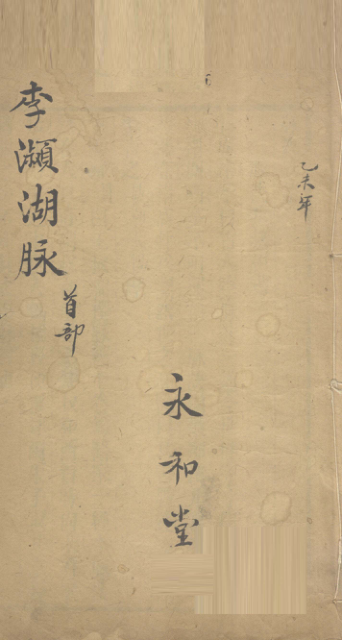 乙未年
永和堂
李瀕湖脉
首部